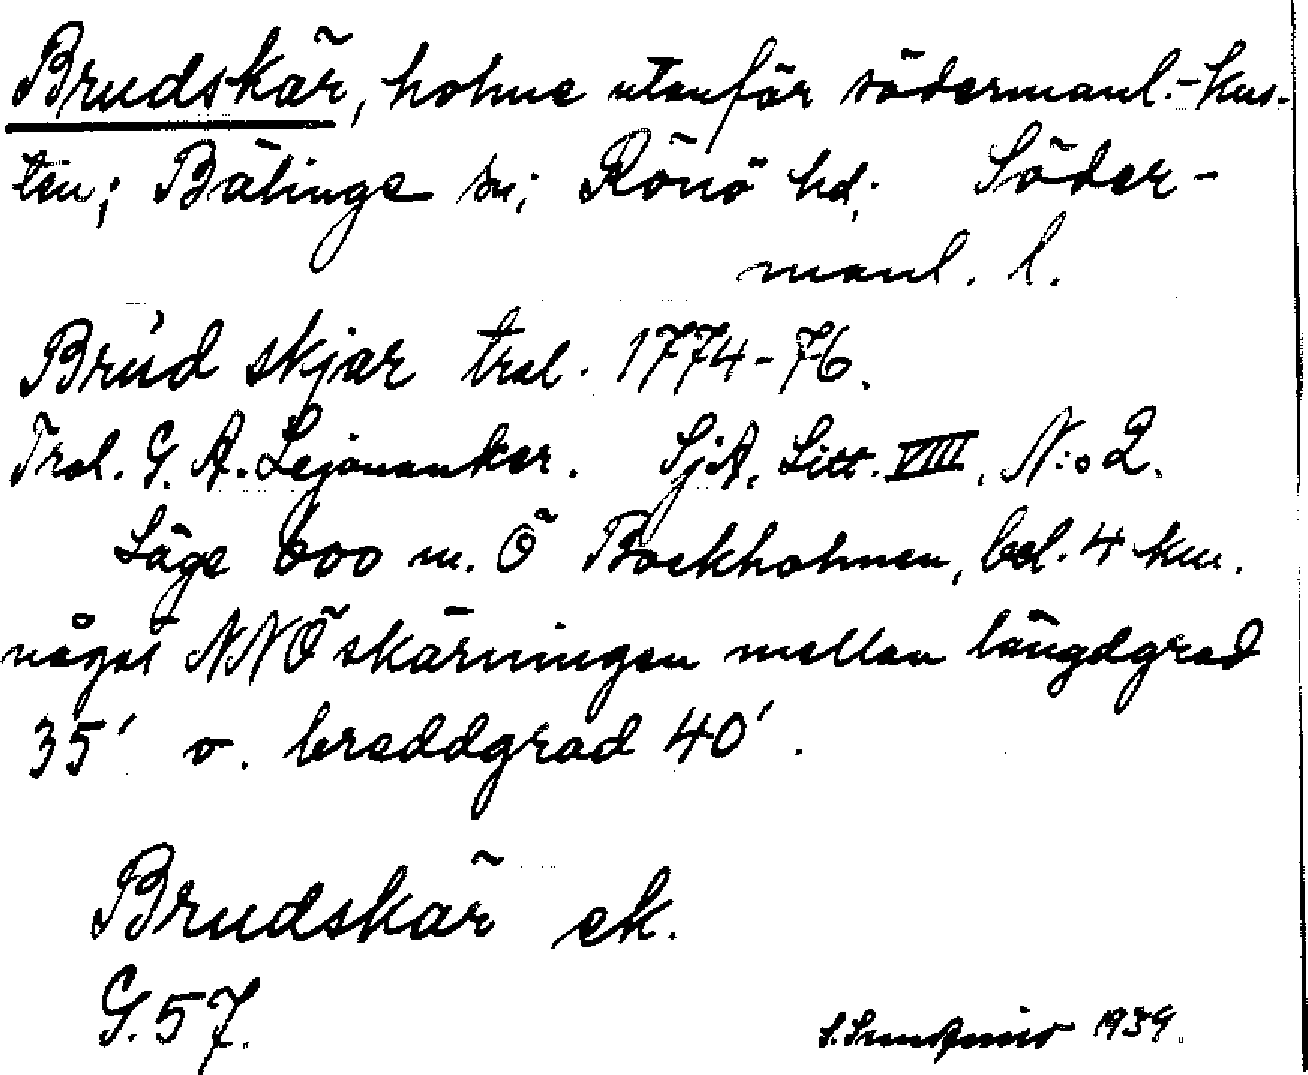 Brudskär, holme utanför södermanl.-kus-
ten; Bälinge sn; Rönö hd; Söder-
manl. l.
Brúd skjar trol. 1774-76.
Trol. G. A. Lejonanker. SjA. Litt. VIII. N:o 2.
Läge 600 m. Ö Bockholmen, bel. 4 km.
något NNÖ skärningen mellan längdgrad
35' o. breddgrad 40'.
Brudskär ek.
G. 57.
1939.